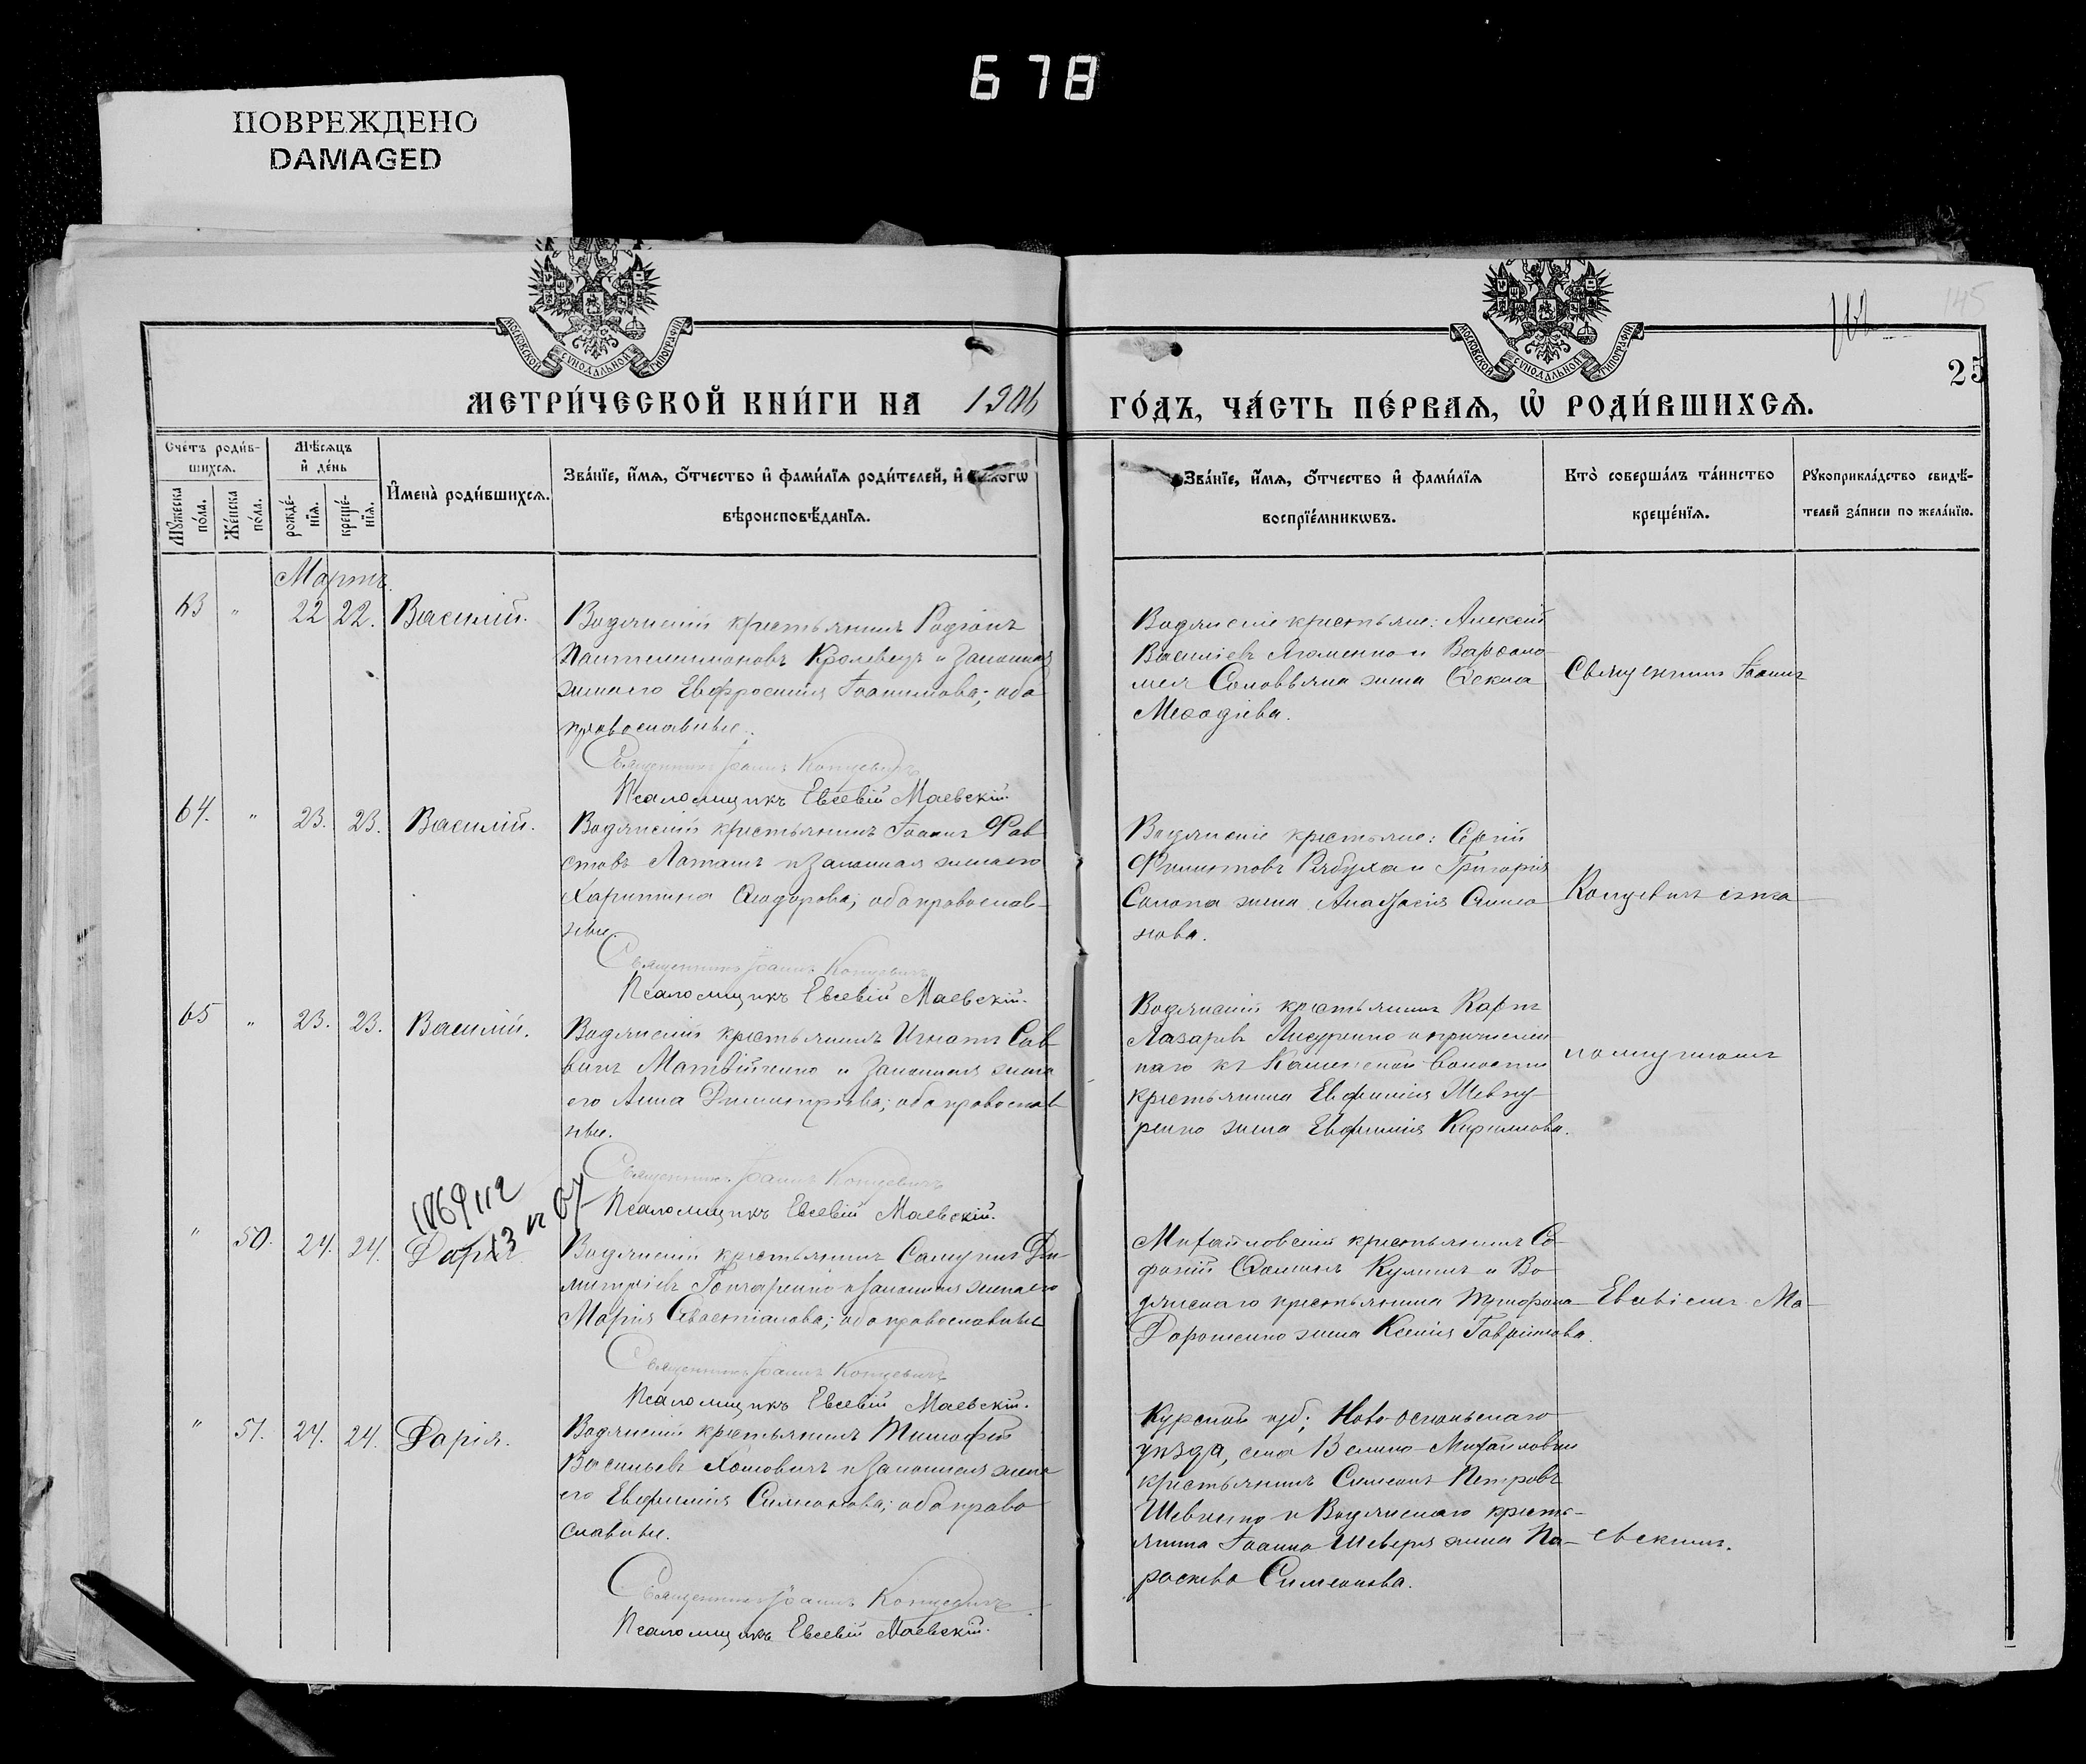 678
ПОВРЕЖДЕНО
DAMAGED
145
25
МОСКОВСКОЙ СѴНОДАЛЬНОЙ ТИПОГРАФІИ
МОСКОВСКОЙ СѴНОДАЛЬНОЙ ТИПОГРАФІИ
МЕТРИ́ЧЕСКОЙ КНИ́ГИ НА 1906 ГО́ДЪ, ЧА́СТЬ ПЕ́РВАЯ, Ѡ РОДИ́ВШИХСЯ.
Сче́тъ роди́в-
шихся.
Мꙋжеска по́ла.
Же́нска по́ла.
Мѣ́сяцъ
и де́нь
рожде́-
нїя.
креще́-
нїя.
Имена̀ роди́вшихся.
Зва́нїе, и́мя, о́тчество и фами́лїя роди́телей, и
вѣроисповѣ́данїя.
Зва́нїе, и́мя, о́тчество и фами́лїя
воспрїе́мникѡвъ.
Кто̀ соверша́лъ та́инство
креще́нїя.
Рꙋкоприкла́дство свидѣ́-
телей за́писи по жела́нїю.
Мартъ
63 " 22 22. Василій.
Водянскій крестьянинъ Родіонъ
Пантелеимоновъ Кролевецъ и законная
жена его Евфросинія Іоакимова; оба
православные.
Священникъ Іоаннъ Концевичъ
Псаломщикъ Евсевій Маевскій.
Водянскіе крестьяне: Алексій
Васильевъ и Варѳоло-
мея Соловьяна жена Ѳекла
Меѳодіева.
Священникъ Іоаннъ
64. " 23. 23. Василій.
Водянскій крестьянинъ Іоаннъ Фав
стовъ Латышъ и законная жена его
Харитина Ѳеодорова; оба православ-
ные.
Священникъ Іоаннъ Концевичъ
Псаломщикъ Евсевій Маевскій.
Водянскіе крестьяне: Сергій
Филиповъ Рябуха и Григорія
Солопа жена Анастасія Симео
нова.
Концевичъ съ пса
65 " 23. 23. Василій.
Водянскій крестьянинъ Игнатъ Сав
винъ Матвійченко и законная жена
его Анна Димитріева; оба православ
ные.
Священникъ Іоаннъ Концевичъ
Псаломщикъ Евсевій Маевскій.
Водянскій крестьянинъ Карпъ
Лазаревъ и причислен
наго къ Каменской волости
крестьянина Евфимія Шевчу-
ренко жена Евфимія Кириллова.
ломщикомъ
" 50. 24. 24. Дарія
Водянскій крестьянинъ Самуилъ Ди
митріевъ Гончаренко и законная жена его
Марія Севастіанова; оба православные
Священникъ Іоаннъ Концевичъ
Псаломщикъ Евсевій Маевскій.
Михайловскій крестьянинъ Со-
фоній Ѳоминъ Кулишъ и Во
дянскаго крестьянина Трифона
Дорошенко жена Ксенія Гавріилова.
Евсевіемъ Ма-
" 51. 24. 24. Дарія.
Водянскій крестьянинъ Тимофей
Васильевъ Хомовичъ и законная жена
его Евфимія Симеонова; оба право
славные.
Священникъ Іоаннъ Концевичъ
Псаломщикъ Евсевій Маевскій.
Курской губ; Ново-Оскольскаго
уѣзда, села Велико-Михайловки
крестьянинъ Симеонъ Петровъ
Шевченко и Водянскаго кресть-
янина Іоанна Шеверя жена Па-
раскева Симеонова.
евскимъ.